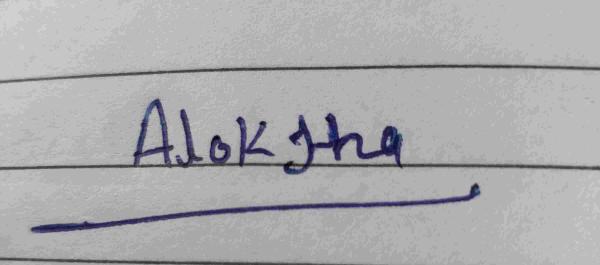 Alok Jha